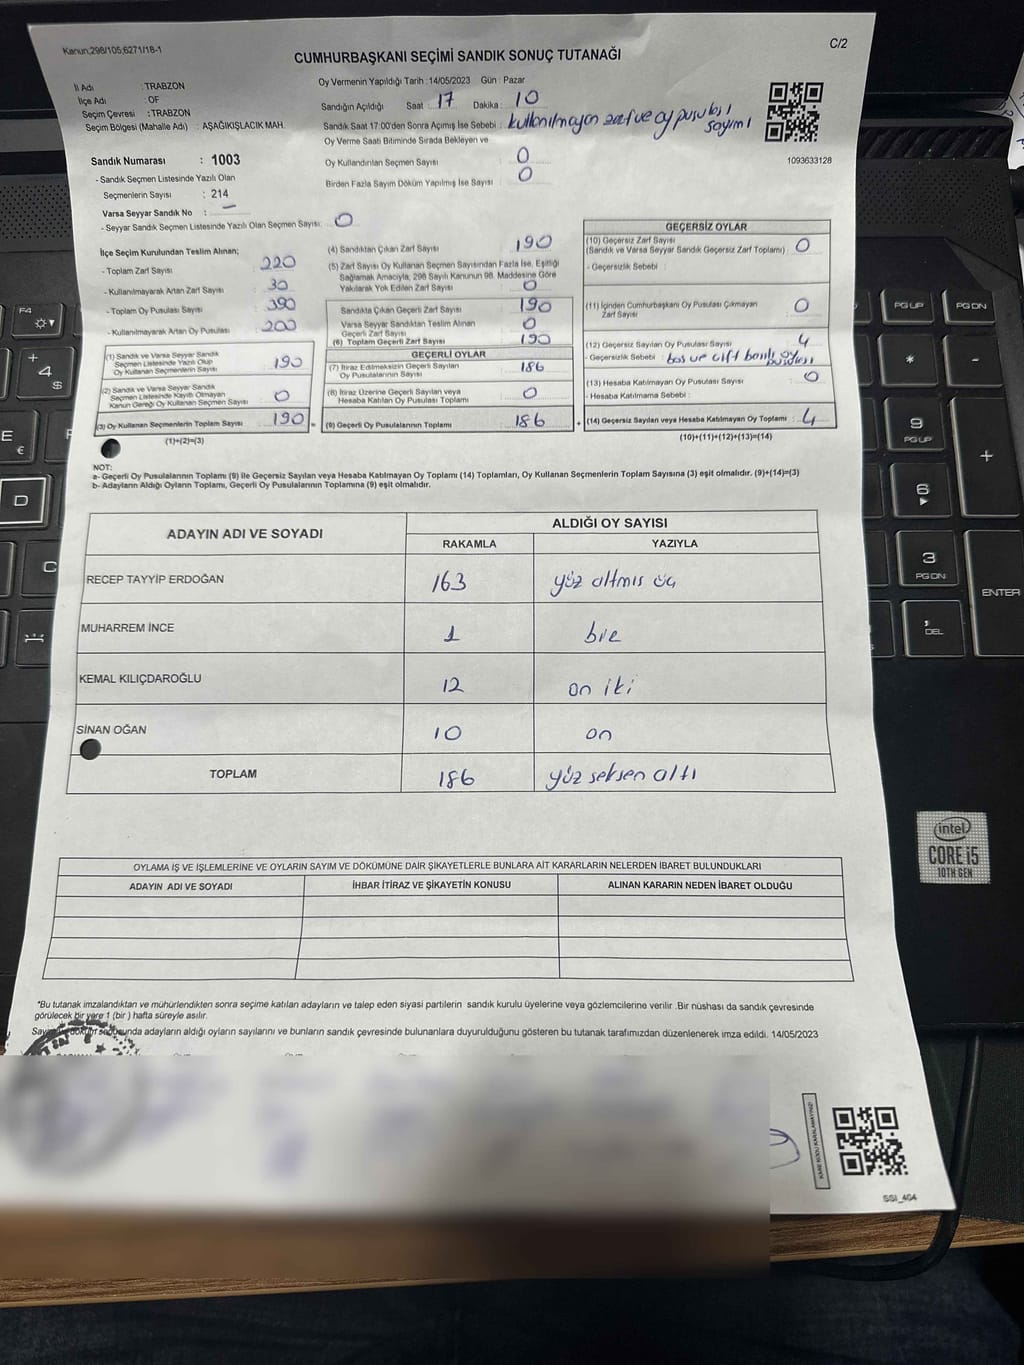 Kanun;298/105;6271/18-1
C/2
CUMHURBAŞKANI SEÇİMİ SANDIK SONUÇ TUTANAĞI
İl Adı : TRABZON
İlçe Adı : OF
Seçim Çevresi : TRABZON
Seçim Bölgesi (Mahalle Adı) : AŞAĞIKIŞLACIK MAH.
Oy Vermenin Yapıldığı Tarih : 14/05/2023 Gün : Pazar
Sandığın Açıldığı Saat : 17 Dakika : 10
Sandık Saat 17:00'den Sonra Açımış İse Sebebi : kullanılmayan zarf ve oy pusulası
sayımı
Oy Verme Saati Bitiminde Sırada Bekleyen ve
Oy Kullandırılan Seçmen Sayısı : 0
Birden Fazla Sayım Döküm Yapılmış İse Sayısı : 0
1093633128
Sandık Numarası : 1003
- Sandık Seçmen Listesinde Yazılı Olan
Seçmenlerin Sayısı : 214
Varsa Seyyar Sandık No : —
- Seyyar Sandık Seçmen Listesinde Yazılı Olan Seçmen Sayısı : 0
İlçe Seçim Kurulundan Teslim Alınan;
- Toplam Zarf Sayısı : 220
- Kullanılmayarak Artan Zarf Sayısı : 30
- Toplam Oy Pusulası Sayısı : 390
- Kullanılmayarak Artan Oy Pusulası : 200
(1) Sandık ve Varsa Seyyar Sandık
Seçmen Listesinde Yazılı Olup
Oy Kullanan Seçmenlerin Sayısı : 190
(2) Sandık ve Varsa Seyyar Sandık
Seçmen Listesinde Kayıtlı Olmayan
Kanun Gereği Oy Kullanan Seçmen Sayısı : 0
(3) Oy Kullanan Seçmenlerin Toplam Sayısı : 190 =
(1)+(2)=(3)
(4) Sandıktan Çıkan Zarf Sayısı : 190
(5) Zarf Sayısı Oy Kullanan Seçmen Sayısından Fazla İse, Eşitliği
Sağlamak Amacıyla, 298 Sayılı Kanunun 98. Maddesine Göre
Yakılarak Yok Edilen Zarf Sayısı : 0
Sandıkta Çıkan Geçerli Zarf Sayısı : 190
Varsa Seyyar Sandıktan Teslim Alınan
Geçerli Zarf Sayısı : 0
(6) Toplam Geçerli Zarf Sayısı : 190
GEÇERLİ OYLAR
(7) İtiraz Edilmeksizin Geçerli Sayılan
Oy Pusulalarının Sayısı : 186
(8) İtiraz Üzerine Geçerli Sayılan veya
Hesaba Katılan Oy Pusulası Toplamı : 0
(9) Geçerli Oy Pusulalarının Toplamı : 186 +
GEÇERSİZ OYLAR
(10) Geçersiz Zarf Sayısı
(Sandık ve Varsa Seyyar Sandık Geçersiz Zarf Toplamı) : 0
- Geçersizlik Sebebi :
(11) İçinden Cumhurbaşkanı Oy Pusulası Çıkmayan
Zarf Sayısı : 0
(12) Geçersiz Sayılan Oy Pusulası Sayısı : 4
- Geçersizlik Sebebi : boş ve çift basılı oy
(13) Hesaba Katılmayan Oy Pusulası Sayısı : 0
- Hesaba Katılmama Sebebi :
(14) Geçersiz Sayılan veya Hesaba Katılmayan Oy Toplamı : 4
(10)+(11)+(12)+(13)=(14)
NOT:
a- Geçerli Oy Pusulalarının Toplamı (9) ile Geçersiz Sayılan veya Hesaba Katılmayan Oy Toplamı (14) Toplamları, Oy Kullanan Seçmenlerin Toplam Sayısına (3) eşit olmalıdır. (9)+(14)=(3)
b- Adayların Aldığı Oyların Toplamı, Geçerli Oy Pusulalarının Toplamına (9) eşit olmalıdır.
ADAYIN ADI VE SOYADI
ALDIĞI OY SAYISI
RAKAMLA YAZIYLA
RECEP TAYYİP ERDOĞAN 163 yüz altmış üç
MUHARREM İNCE 1 bir
KEMAL KILIÇDAROĞLU 12 on iki
SİNAN OĞAN 10 on
TOPLAM 186 yüz seksen altı
OYLAMA İŞ VE İŞLEMLERİNE VE OYLARIN SAYIM VE DÖKÜMÜNE DAİR ŞİKAYETLERLE BUNLARA AİT KARARLARIN NELERDEN İBARET BULUNDUKLARI
ADAYIN ADI VE SOYADI İHBAR İTİRAZ VE ŞİKAYETİN KONUSU ALINAN KARARIN NEDEN İBARET OLDUĞU
*Bu tutanak imzalandıktan ve mühürlendikten sonra seçime katılan adayların ve talep eden siyasi partilerin sandık kurulu üyelerine veya gözlemcilerine verilir .Bir nüshası da sandık çevresinde
görülecek bir yere 1 (bir ) hafta süreyle asılır.
Sayım döküm sonucunda adayların aldığı oyların sayılarını ve bunların sandık çevresinde bulunanlara duyurulduğunu gösteren bu tutanak tarafımızdan düzenlenerek imza edildi. 14/05/2023
KARE KODU KARALAMAYINIZ!
SSI_404
intel
CORE i5
10TH GEN
F4
+
4
$
E
€
F
D
C
PG UP
PG DN
*
-
9
PG UP
+
6
3
PG DN
ENTER
DEL